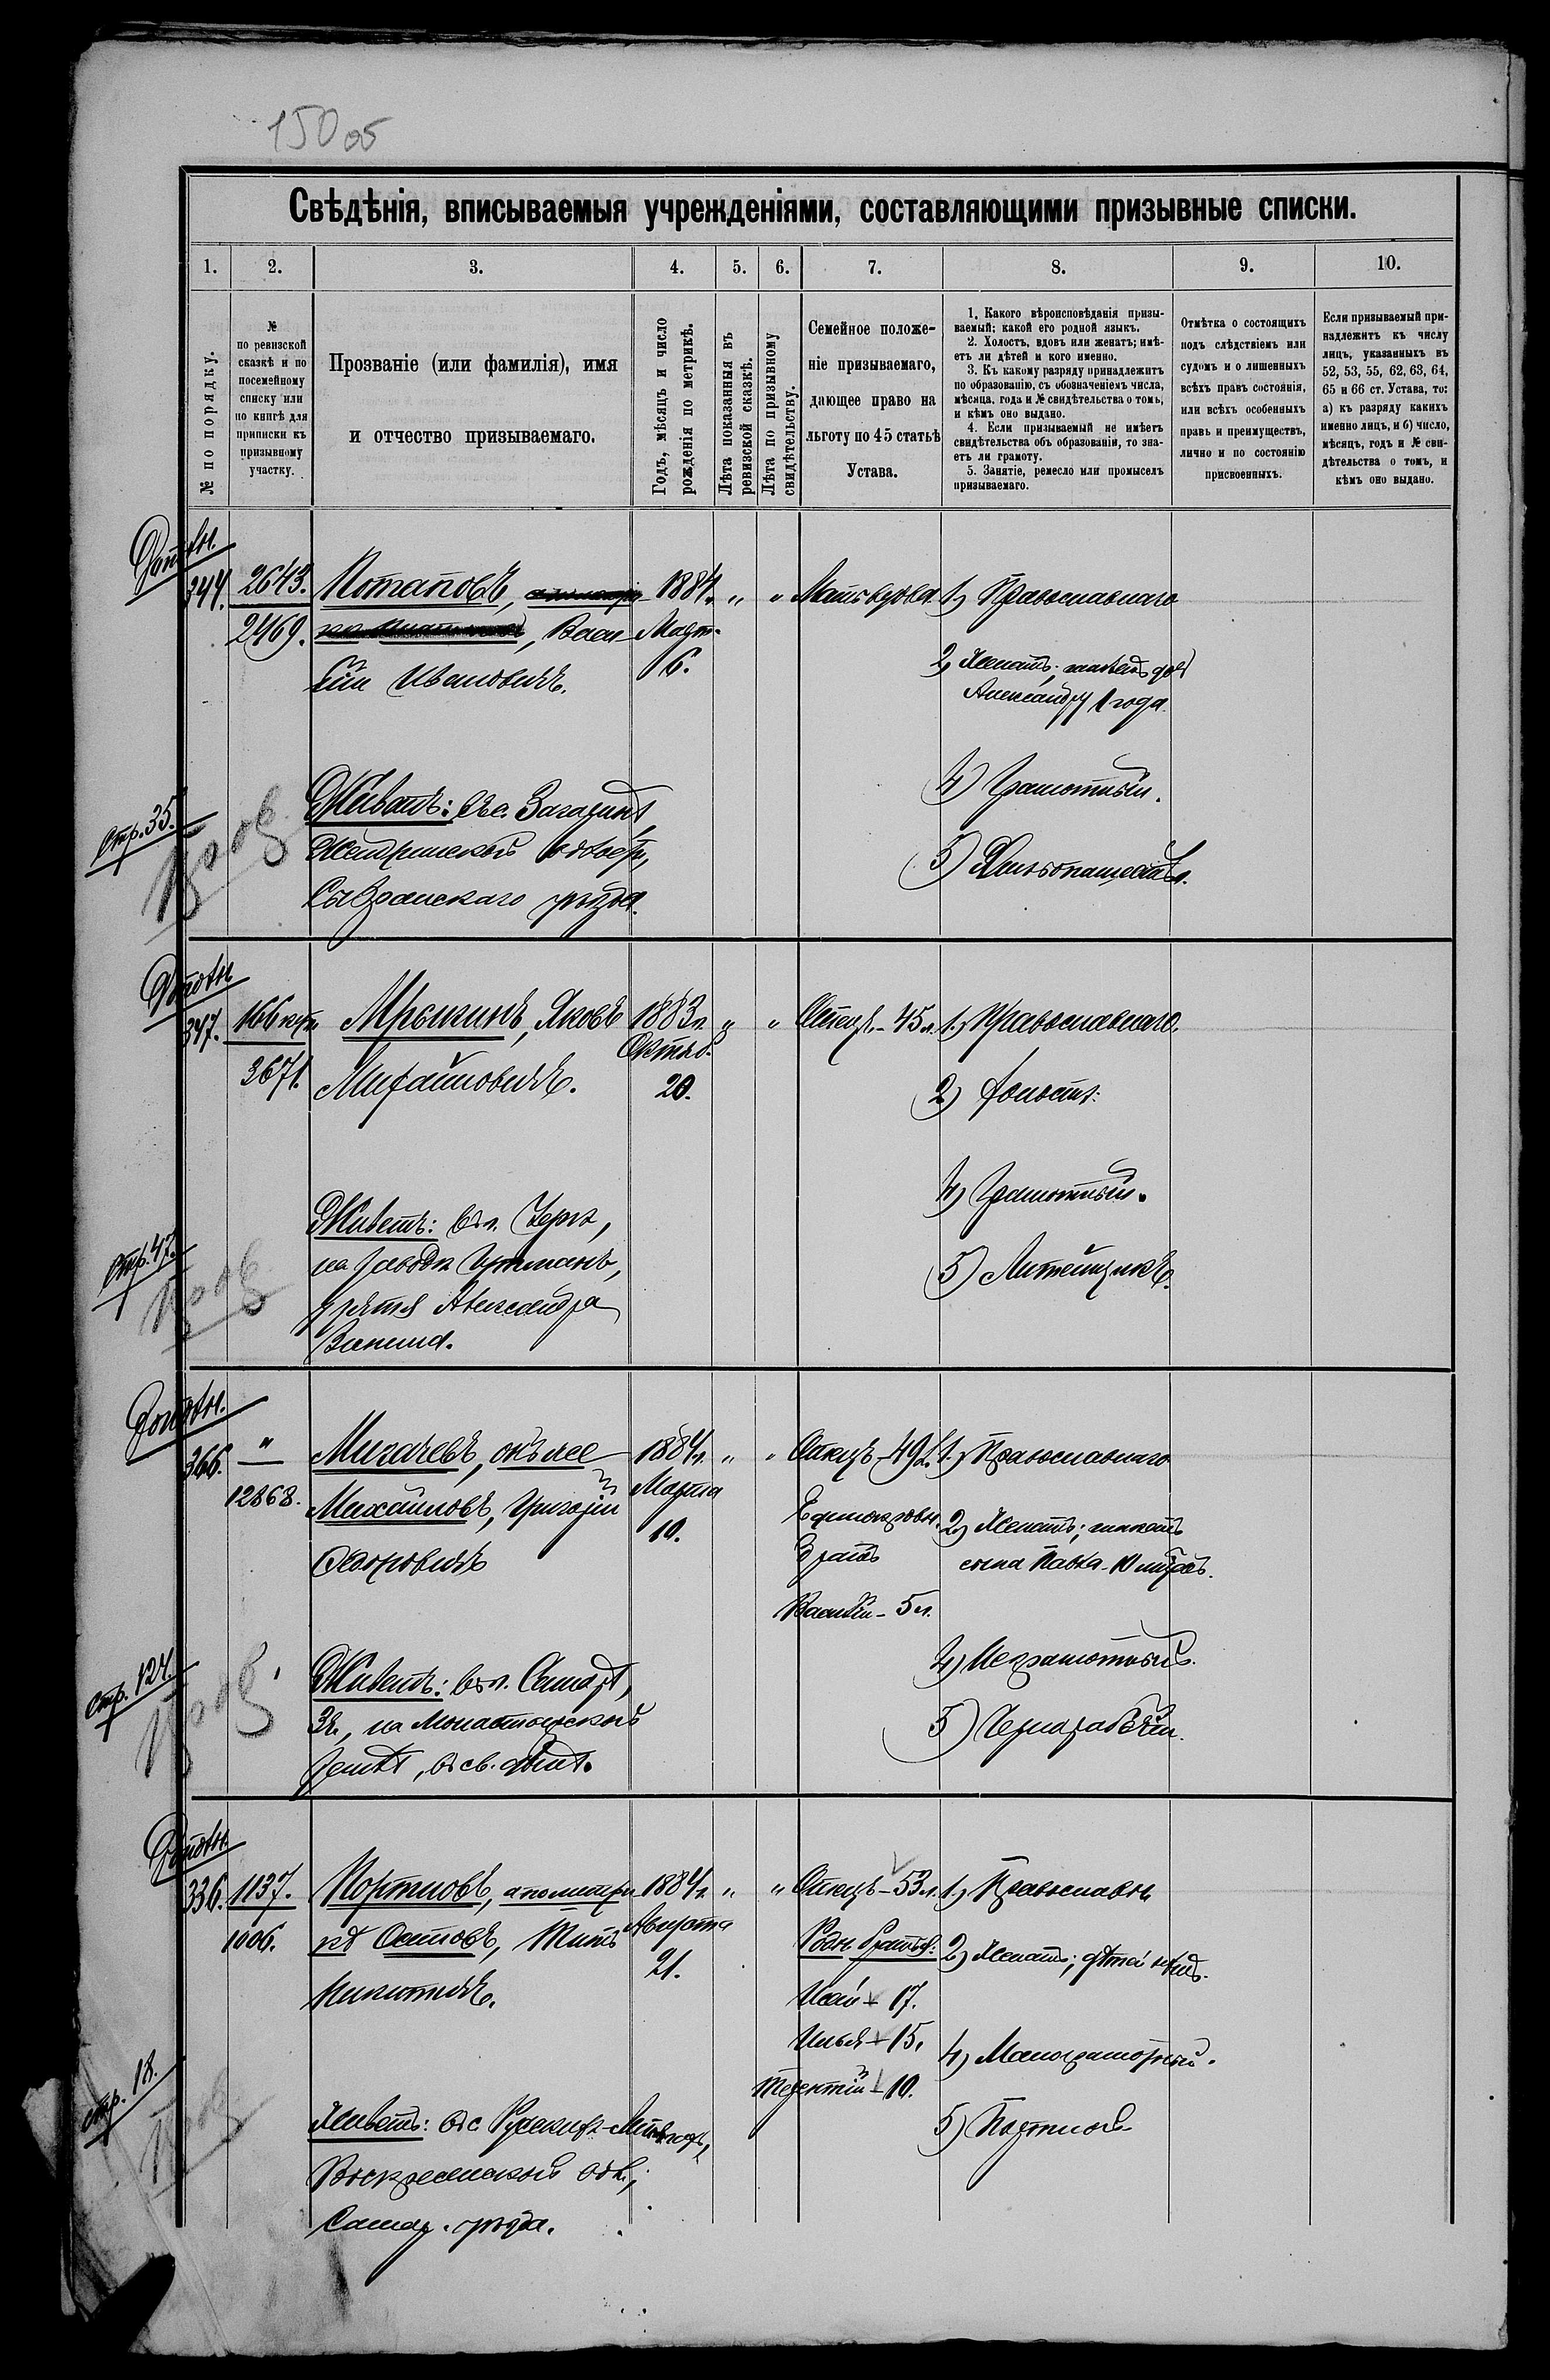 150 об
Свѣдѣнія, вписываемыя учрежденіями, составляющими призывные списки.
1. 2. 3. 4. 5. 6. 7. 8. 9. 10.
№ по порядку.
№
по ревизской
сказкѣ и по
посемейному
списку или
по книгѣ для
приписки къ
призывному
участку.
Прозваніе (или фамилія), имя
и отчество призываемаго.
Годъ, мѣсяцъ и число
рожденія по метрикѣ.
Лѣта показанныя въ
ревизской сказкѣ.
Лѣта по призывному
свидѣтельству.
Семейное положе-
ніе призываемаго,
дающее право на
льготу по 45 статьѣ
Устава.
1. Какого вѣроисповѣданія призы-
ваемый; какой его родной языкъ.
2. Холостъ, вдовъ или женатъ; имѣ-
етъ ли дѣтей и кого именно.
3. Къ какому разряду принадлежитъ
по образованію, съ обозначеніемъ числа,
мѣсяца, года и № свидѣтельства о томъ,
и кѣмъ оно выдано.
4. Если призываемый не имѣетъ
свидѣтельства объ образованіи, то зна-
етъ ли грамоту.
5. Занятіе, ремесло или промыселъ
призываемаго.
Отмѣтка о состоящихъ
подъ слѣдствіемъ или
судомъ и о лишенныхъ
всѣхъ правъ состоянія,
или всѣхъ особенныхъ
правъ и преимуществъ,
лично и по состоянію
присвоенныхъ.
Если призываемый при-
надлежитъ къ числу
лицъ, указанныхъ въ
52, 53, 55, 62, 63, 64,
65 и 66 ст. Устава, то:
а) къ разряду какихъ
именно лицъ, и б) число,
мѣсяцъ, годъ и № сви-
дѣтельства о томъ, и
кѣмъ оно выдано.
344.
2643.
2469.
Потаповъ,
, Васи-
лій Ивановичъ.
1884.
Март.
6.
" "
Мать вдова.
1) Православнаго
2) Женатъ;
Александру 1 года
4) Грамотный.
5) Хлѣбопашество.
Живетъ:
Сызранскаго уѣзда.
Стр. 35.
347.
166
3671.
Мрыкинъ, Яковъ
Михайловичъ.
1883 г.
Октяб.
20.
" "
Отецъ - 45 л.
1) Православнаго.
2) Холостъ.
4) Грамотный.
5) Литейщикъ.
Живетъ:
на заводѣ
у зятя Александра
Стр. 47.
366.
"
12868.
Мигачевъ, онъ же
Михайловъ, Григорій
1884 г.
Марта
10.
" "
Отецъ - 49 л.
Единокровн.
братъ
Василій - 5 л.
1) Православнаго
2) Женатъ; имѣетъ
сына Павла - 10 мѣсяц.
4) Неграмотный.
5) Чернорабочій.
Живетъ: въ г. Самарѣ,
3 ч., на Монастырской
землѣ, въ св. домѣ.
Стр. 124.
336.
1137.
1006.
Портновъ, а по метри-
кѣ Осиповъ, Титъ
Никитичъ.
1884 г.
Августа
21.
" "
Отецъ - 53 л.
Родн. братья:
Исай - 17.
Илья - 15.
Терентій - 10.
1) Православн.
2) Женатъ; дѣтей нѣтъ.
4) Малограмотный.
5) Портной.
Живетъ: въ с. Русскихъ-Липягахъ,
Воскресенской вол.,
Самар. уѣзда.
стр. 18.